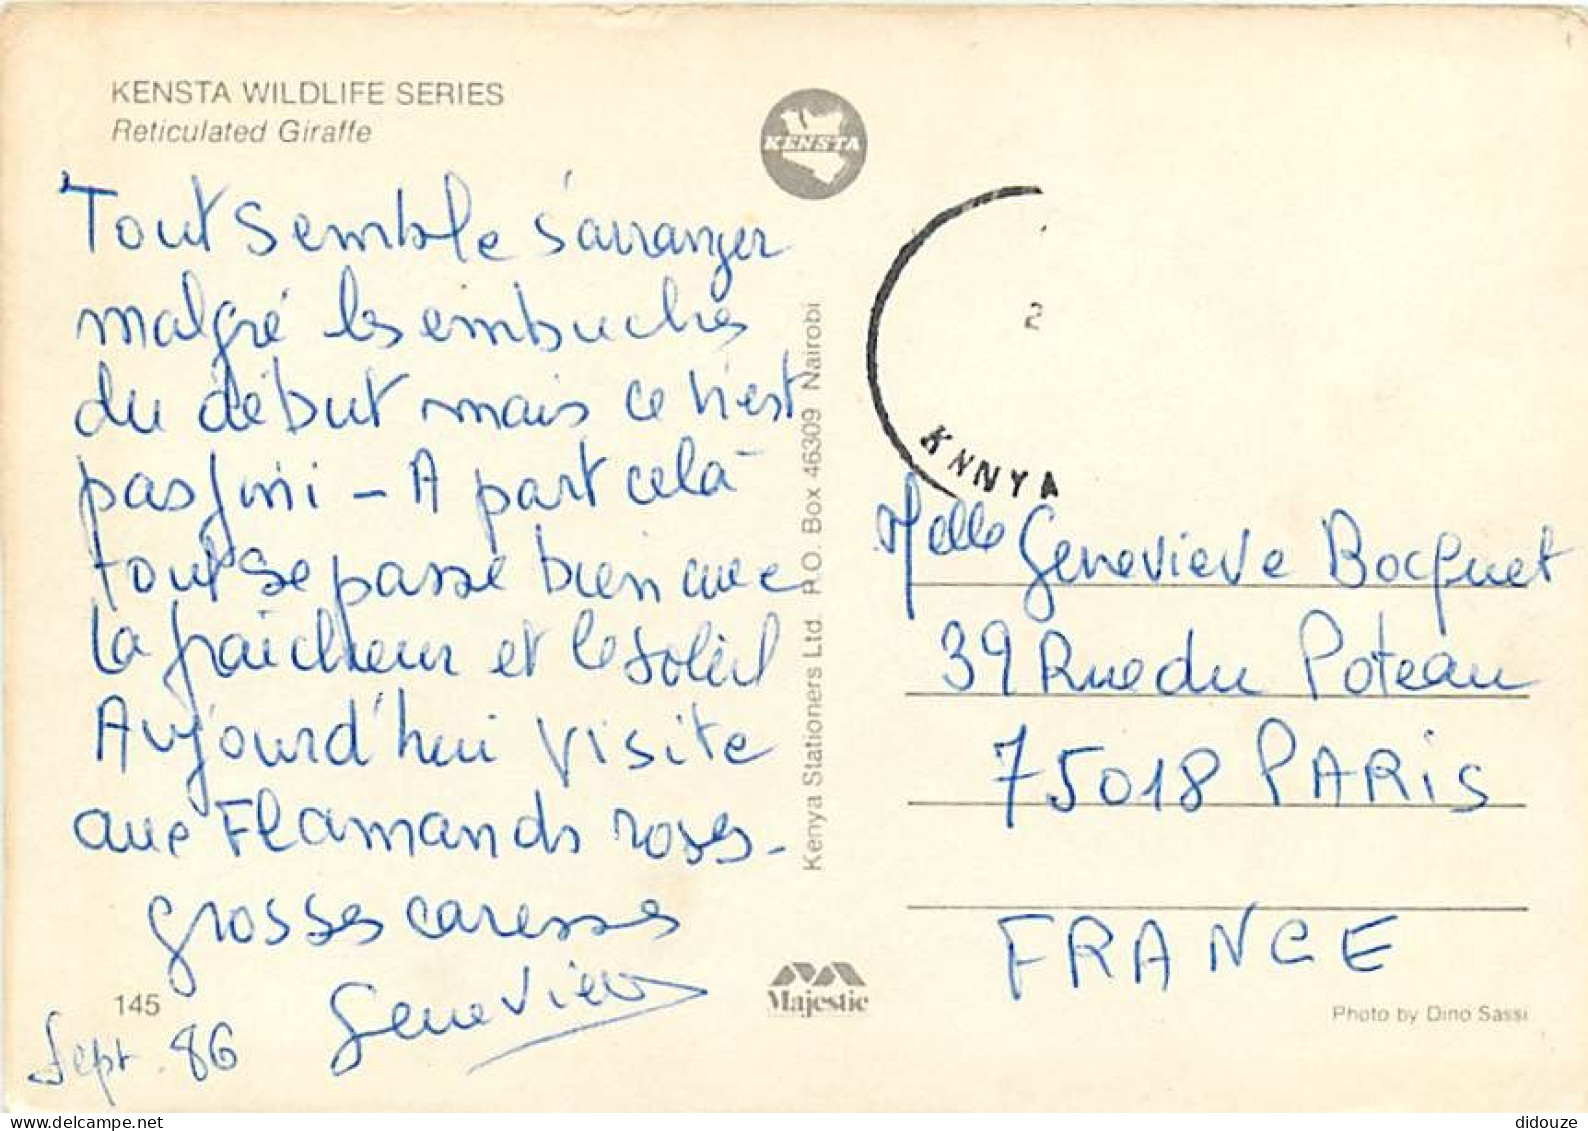 KENSTA WILDLIFE SERIES
Reticulated Giraffe
KENSTA
Tout semble s'arranger
malgré les embuches
du début mais ce n'est
pas fini - A part celà
tout se passe bien avec
la fraicheur et le soleil
Aujourd'hui visite
aux Flamands roses -
grosses caresses
Genevieve
145
Sept. 86
Kenya Stationers Ltd. P.O. Box 46309 Nairobi
Majestic
2
KNNYA
Melle Genevieve Bocquet
39 Rue du Poteau
75018 PARIS
FRANCE
Photo by Dino Sassi
didouze